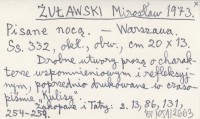 ŻUŁAWSKI Mirosław 1973.
Pisane nocą. — Warszawa.
Ss. 332, okł. obw., cm 20 x 13.
Drobne utwory prozą o charak-
terze wspomnieniowym i refleksyj-
nym, poprzednio drukowane w czaso-
piśmie "Kulisy".
Zakopane i Tatry: s. 13, 86, 131,
254-259.